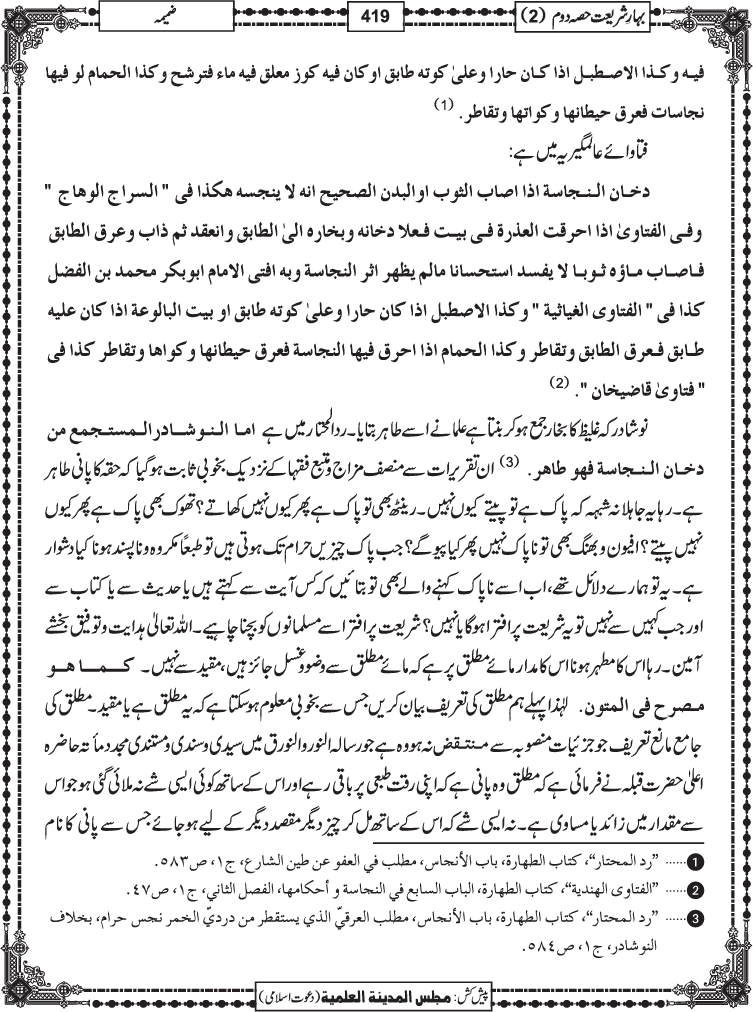 بہارِ شریعت حصہ دوم (2)
419
ضمیمہ
فيه وكذا الاصطبل اذا كان حارا وعلىٰ كوته طابق اوكان فيه كوز معلق فيه ماء فترشح وكذا الحمام لو فيها
نجاسات فعرق حيطانها وكواتها وتقاطر. (1)
فتاوائے عالمگیریہ میں ہے:
دخان النجاسة اذا اصاب الثوب اوالبدن الصحيح انه لا ينجسه هكذا فى " السراج الوهاج "
وفى الفتاوىٰ اذا احرقت العذرة فى بيت فعلا دخانه وبخاره الىٰ الطابق وانعقد ثم ذاب وعرق الطابق
فاصاب ماؤه ثوبا لا يفسد استحسانا مالم يظهر اثر النجاسة وبه افتى الامام ابوبكر محمد بن الفضل
كذا فى " الفتاوى الغياثية " وكذا الاصطبل اذا كان حارا وعلىٰ كوته طابق او بيت البالوعة اذا كان عليه
طابق فعرق الطابق وتقاطر وكذا الحمام اذا احرق فيها النجاسة فعرق حيطانها وكواها وتقاطر كذا فى
" فتاوىٰ قاضيخان ". (2)
نوشادر کہ غلیظ کا بخار جمع ہوکر بنتا ہے علما نے اسے طاہر بتایا۔ ردالمحتار میں ہے اما النوشادر المستجمع من
دخان النجاسة فهو طاهر. (3) ان تقریرات سے منصف مزاج و متبع فقہا کے نزدیک بخوبی ثابت ہوگیا کہ حقہ کا پانی طاہر
ہے۔ رہا یہ جاہلانہ شبہہ کہ پاک ہے تو پیتے کیوں نہیں۔ رینٹھ بھی تو پاک ہے پھر کیوں نہیں کھاتے؟ تھوک بھی پاک ہے پھر کیوں
نہیں پیتے؟ افیون و بھنگ بھی تو ناپاک نہیں پھر کیا پیو گے؟ جب پاک چیزیں حرام تک ہوتی ہیں تو طبعًا مکروہ و ناپسند ہونا کیا دشوار
ہے۔ یہ تو ہمارے دلائل تھے، اب اسے ناپاک کہنے والے بھی تو بتائیں کہ کس آیت سے کہتے ہیں یا حدیث سے یا کتاب سے
اور جب کہیں سے نہیں تو یہ شریعت پر افترا ہوگا یا نہیں؟ شریعت پر افترا سے مسلمانوں کو بچنا چاہیے۔ اللہ تعالیٰ ہدایت و توفیق بخشے
آمین۔ رہا اس کا مطہر ہونا اس کا مدار مائے مطلق پر ہے کہ مائے مطلق سے وضو و غسل جائز ہیں، مقید سے نہیں۔ كما هو
مصرح فى المتون. لہٰذا پہلے ہم مطلق کی تعریف بیان کریں جس سے بخوبی معلوم ہوسکتا ہے کہ یہ مطلق ہے یا مقید۔ مطلق کی
جامع مانع تعریف جو جزئیات منصوبہ سے منتقض نہ ہو وہ ہے جو رسالہ النور والنورق میں سیدی وسندی ومستندی مجدد مأتہ حاضرہ
اعلیٰ حضرت قبلہ نے فرمائی ہے کہ مطلق وہ پانی ہے کہ اپنی رقت طبعی پر باقی رہے اور اس کے ساتھ کوئی ایسی شے نہ ملائی گئی ہو جو اس
سے مقدار میں زائد یا مساوی ہے۔ نہ ایسی شے کہ اس کے ساتھ مل کر چیز دیگر مقصد دیگر کے لیے ہوجائے جس سے پانی کا نام
1 ...... ”رد المحتار“، كتاب الطهارة، باب الأنجاس، مطلب في العفو عن طين الشارع، ج١، ص٥٨٣.
2 ...... ”الفتاوى الهندية“، كتاب الطهارة، الباب السابع في النجاسة و أحكامها، الفصل الثاني، ج١، ص٤٧.
3 ...... ”رد المحتار“، كتاب الطهارة، باب الأنجاس، مطلب العرقيّ الذي يستقطر من درديّ الخمر نجس حرام، بخلاف
النوشادر، ج١، ص٥٨٤.
پیش کش: مجلس المدينة العلمية (دعوت اسلامی)